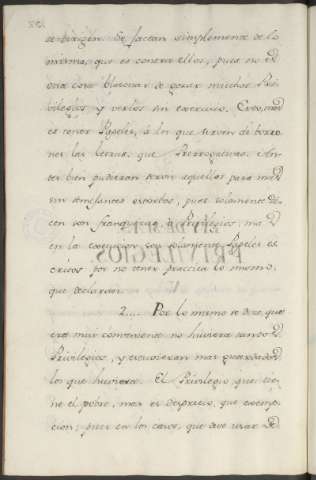 se dirigen. Se jactan simplemente de lo
mismo, que es contra ellos; pues no es
otra cosa blasonar de gozar muchos Pri
vilegios y verlos sin exercicio. Esto, mas
es tener Papeles, á los que sirven de borro
nes las letras, que Prerrogativas. An
tes bien pudieran servir aquellos para
sin semejantes asientos, pues solamente di
cen son franquezas, ó Privilegios, mas
en la execucion son solamente Papeles es
critos por no tener practica lo mismo,
que declaran.
2.... Por lo mismo se dice, que
era mas conveniente no huviera tantos
Privilegios, y estuvieran mas guardados
los que huviera. El Privilegio, que tie
ne el pobre, mas es desprecio, que exemp
cion; pues en los casos, que deve usar de